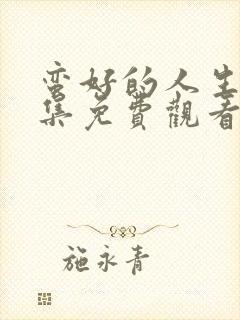 蛮好的人生
集免費觀看
施永青